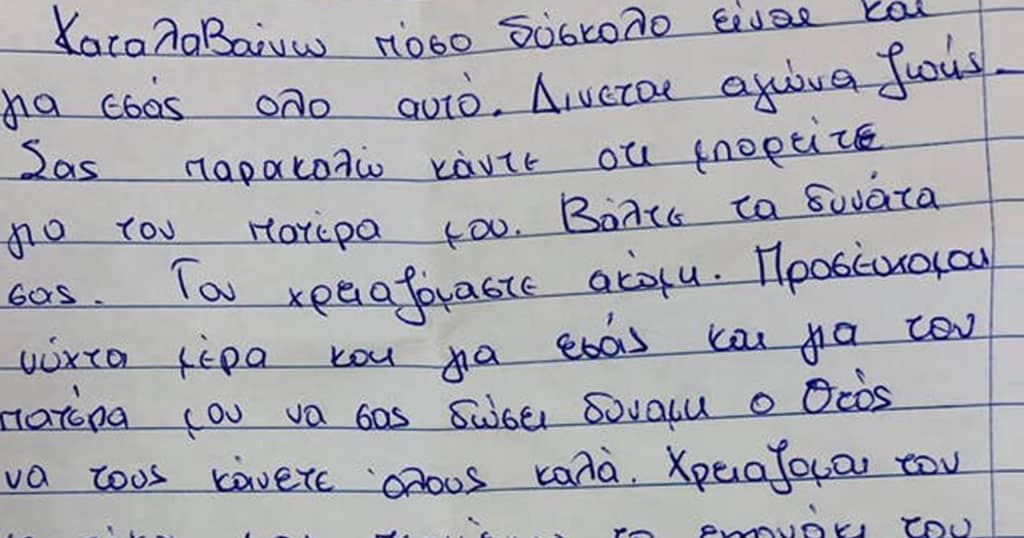 Καταλαβαίνω πόσο δύσκολο είναι και
για εσάς ολο αυτό. Δινεται αγώνα ζωής.
Σας παρακαλώ κάντε οτι μπορείτε
για τον πατέρα μου. Βάλτε τα δυνάτα
σας. Τον χρειαζόμαστε ακόμη. Προσέυχομαι
νύχτα μέρα και για εσάς και για τον
πατέρα μου να σας δώσει δυναμη ο Θεός
να τους κάνετε όλους καλά. Χρειαζομαι τον
το του